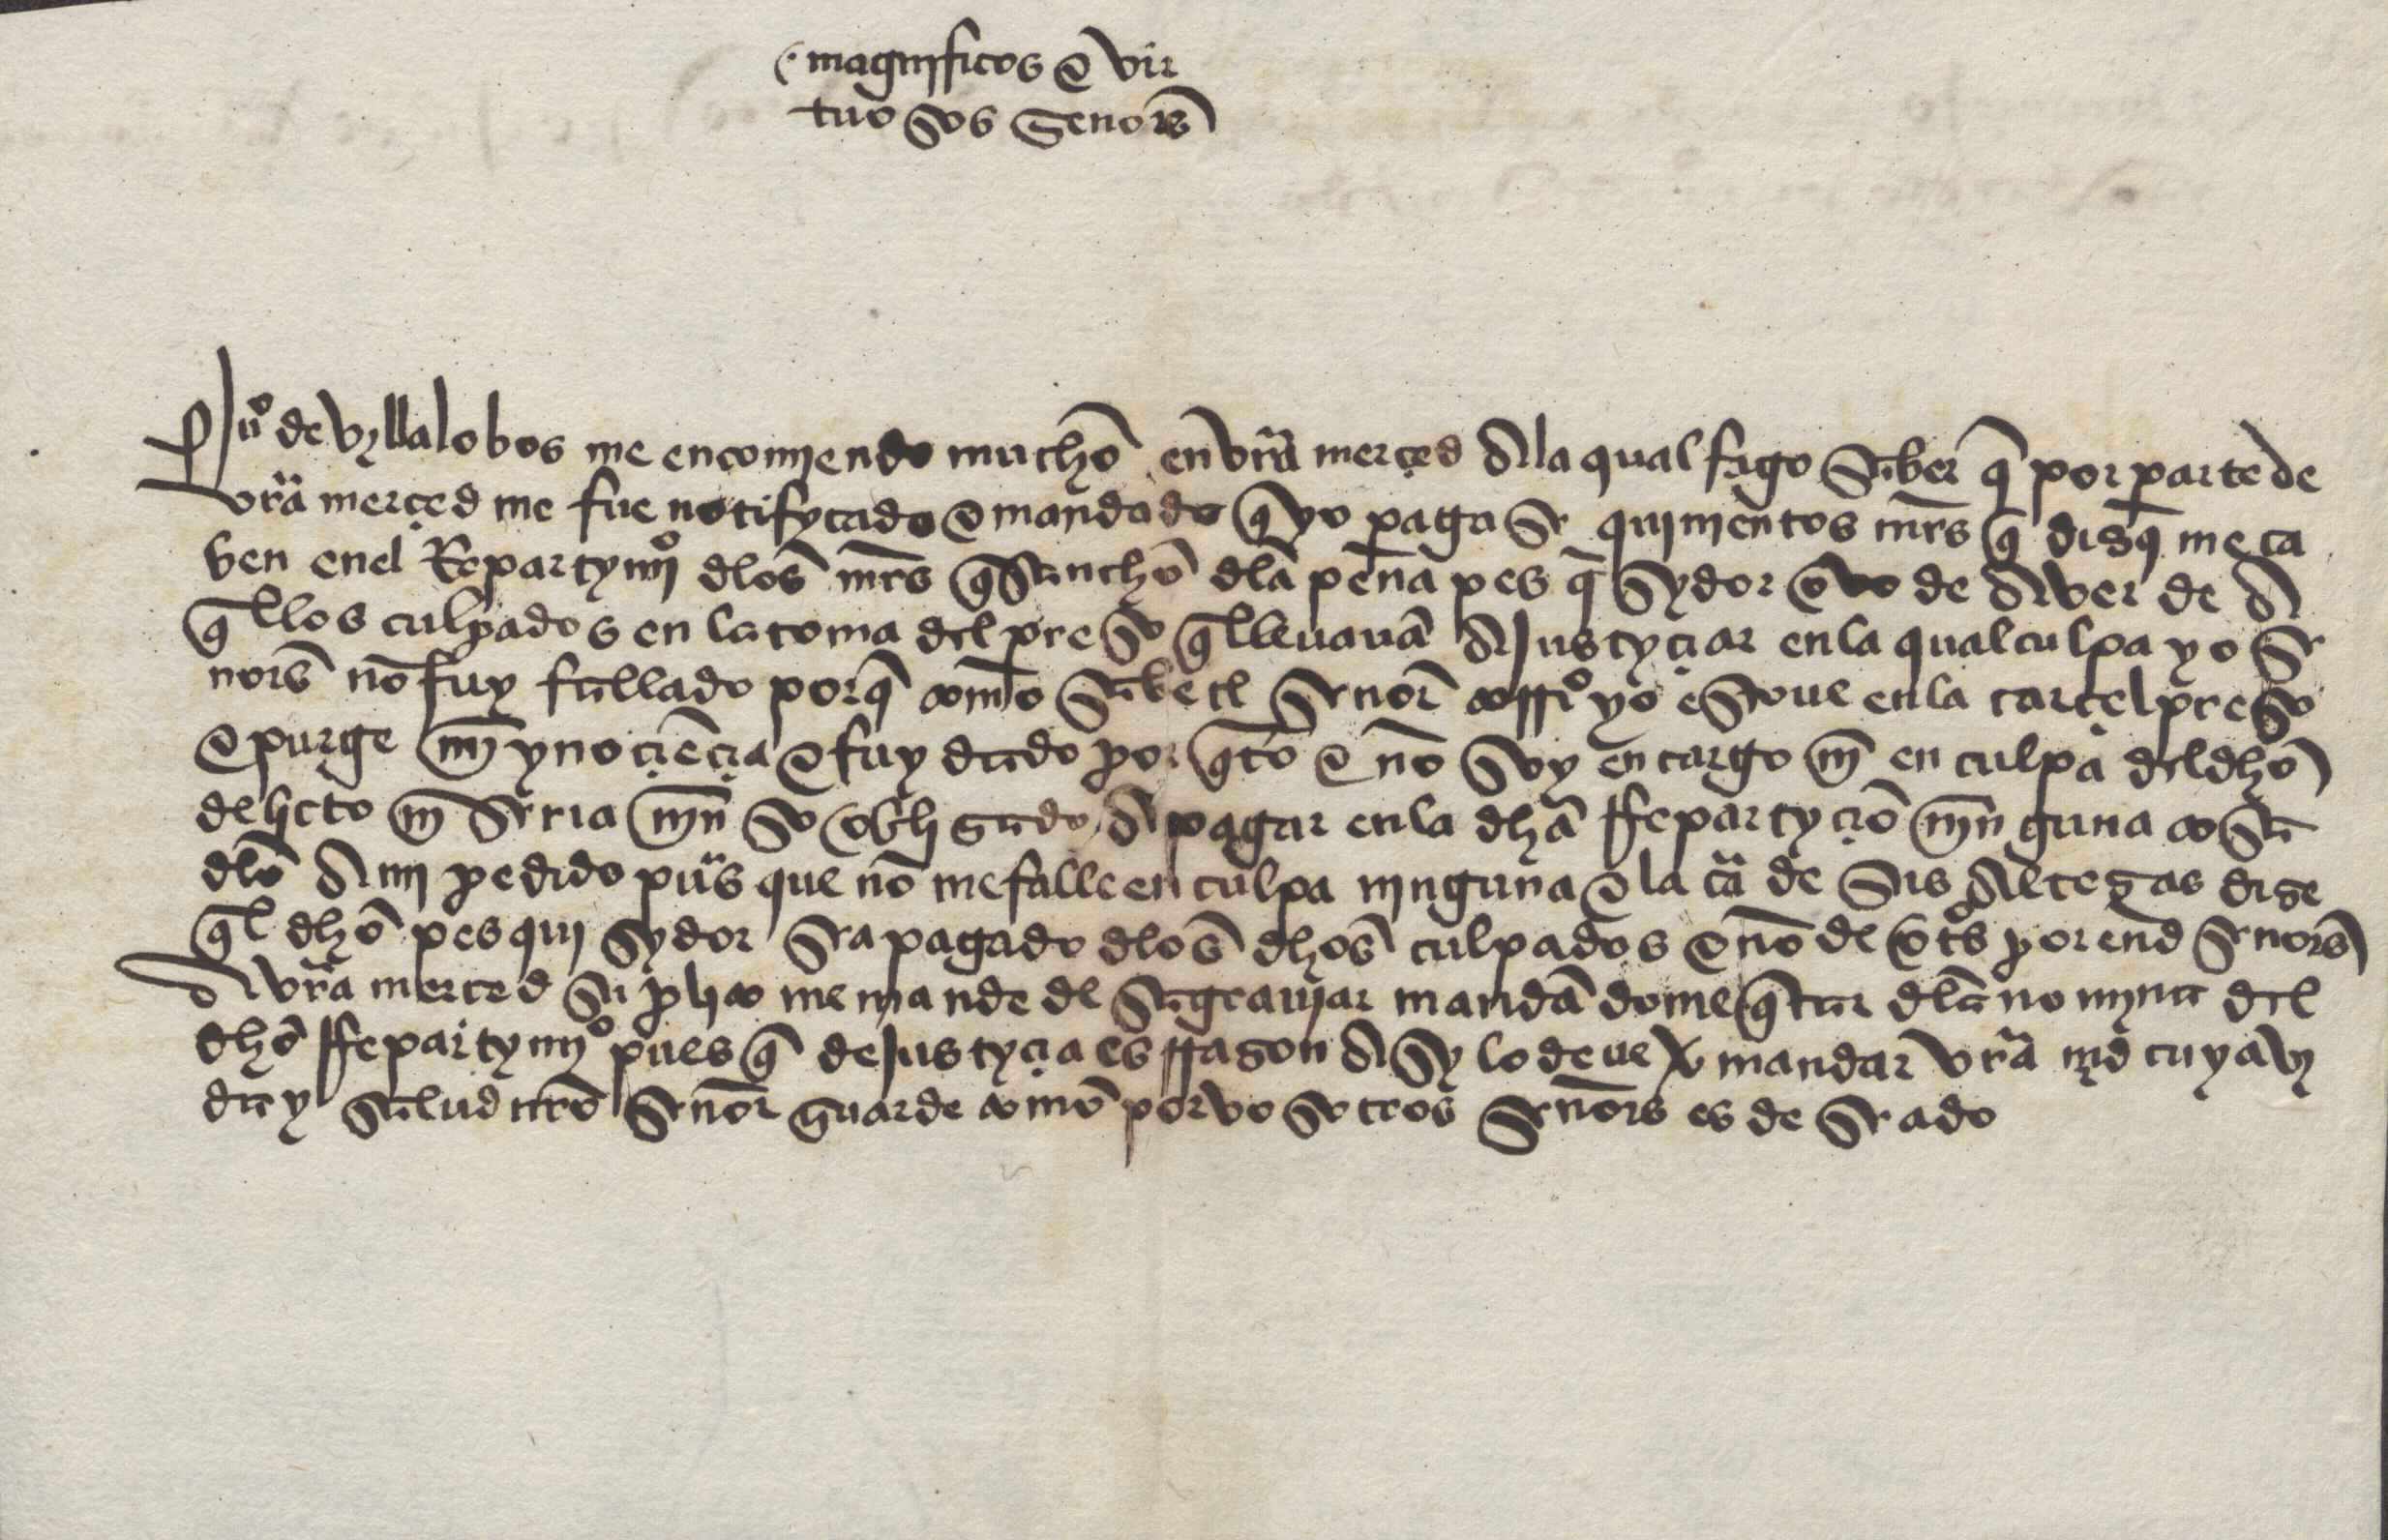 magnificos e vir
tuosos Senores
Juo de vyllalobos me encomiendo mucho en vra merçed A la qual fago saber q por parte de
vra merçed me fue notifycado e mandado q yo pagase quinientos mrs q disq me ca
ben en el Repartymio dlos mrs q Sancho dla pena pesqsydor ovo de Aver de A
qllos culpados en la toma del preso q llevavã A Justyçiar en la qual culpa yo se
nors no fuy fallado porq como sabe el señor corrior yo estove en la carçel preso
e purge mi ynoçiẽçia e fuy dado por qto e no soy en cargo ni en culpa del dho
delicto ni seria nin so obligado A pagar en la dha rrepartyçiõ ninguna cosa
dlo A mi pedido pues que no me falle en culpa ninguna e la ca de sus Altezas dize
ql dho pesquisydor sea pagado dlos dhos culpados e no de otos por end senors
A vra merced suplico me mande desagraviar mandãdome qtar dla nomyna del
dho rrepartymio pues q de Justyçia es rrason Asy lo deve mandar vra md cuya vi
da y salud nro señor guarde como por vosotros señors es deseado